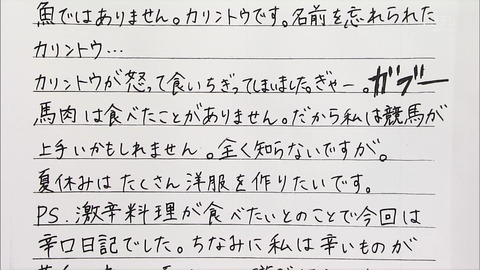 魚ではありません。カリントウです。名前を忘れられた
カリントウ…
カリントウが怒って食いちぎってしまいました。ぎゃー。ガブー
馬肉は食べたことがありません。だから私は競馬が
上手いかもしれません。全く知らないですが。
夏休みはたくさん洋服を作りたいです。
PS.激辛料理が食べたいとのことで今回は
辛口日記でした。ちなみに私は辛いものが